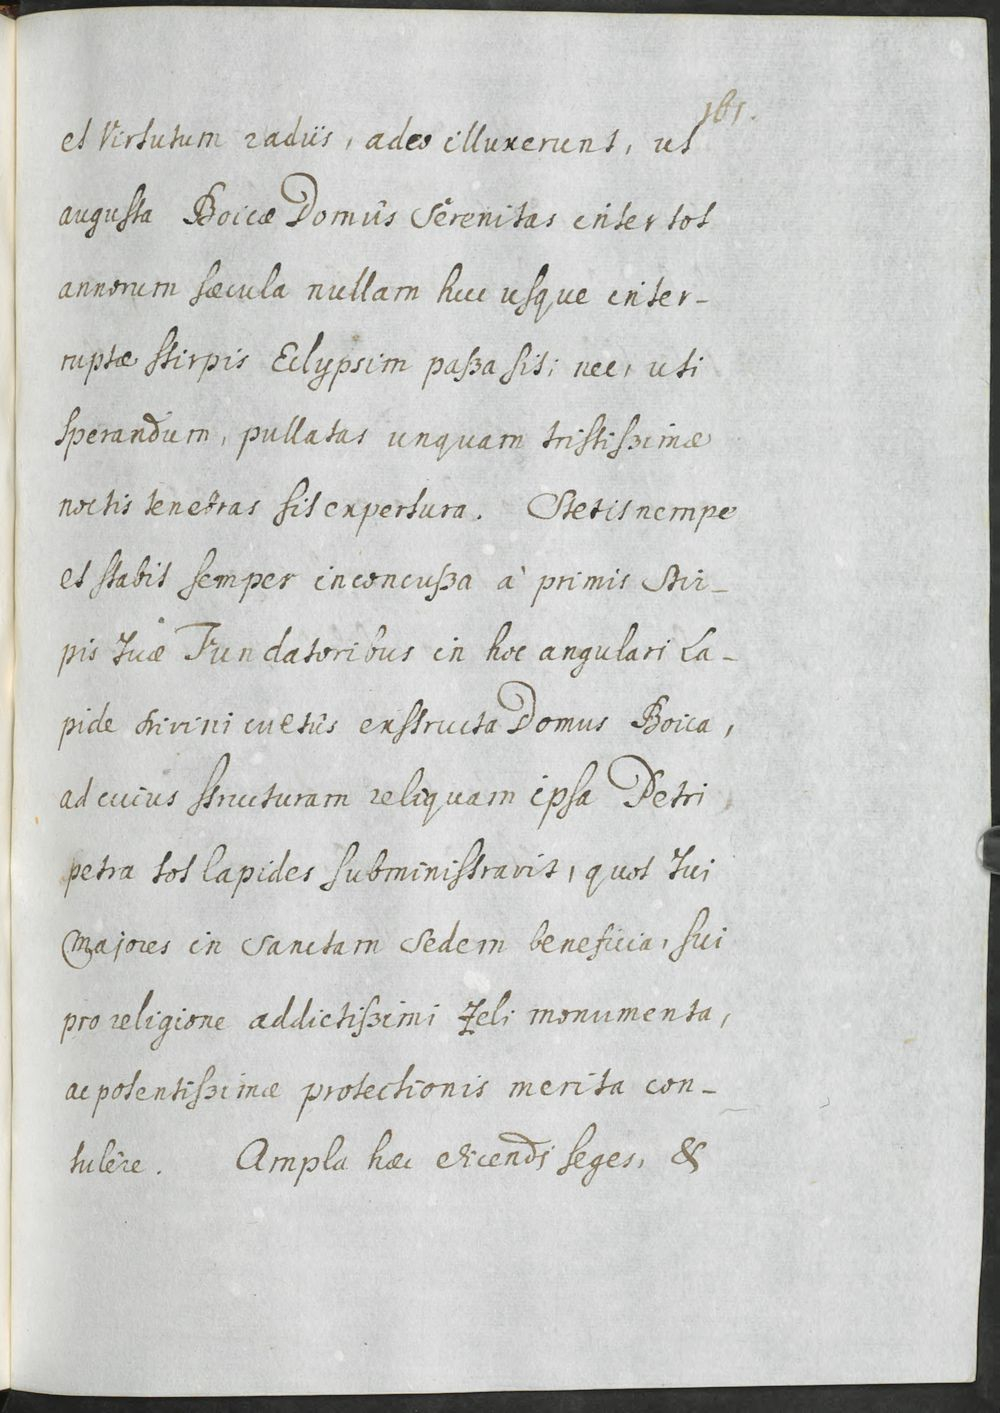 161.
et Virtutum radiis, adeo illuxerunt, ut
augusta Boicæ Domûs Serenitas inter tot
annorum sæcula nullam huc usque inter-
ruptæ stirpis Eclypsim passa sit; nec, uti
sperandum, pullatas unquam tristissimæ
noctis tenebras sit expertura. Stetit nempe
et stabit semper inconcussa à primis Stir-
pis Tuæ Fundatoribus in hoc angulari La-
pide divini cultûs exstructa Domus Boica,
ad cuius structuram reliquam ipsa Petri
petra tot lapides subministravit, quot Tui
Majores in Sanctam Sedem beneficia, sui
pro religione addictissimi Zeli monumenta,
ac potentissimæ protectionis merita con-
tulêre. Ampla hæc dicendi seges, &